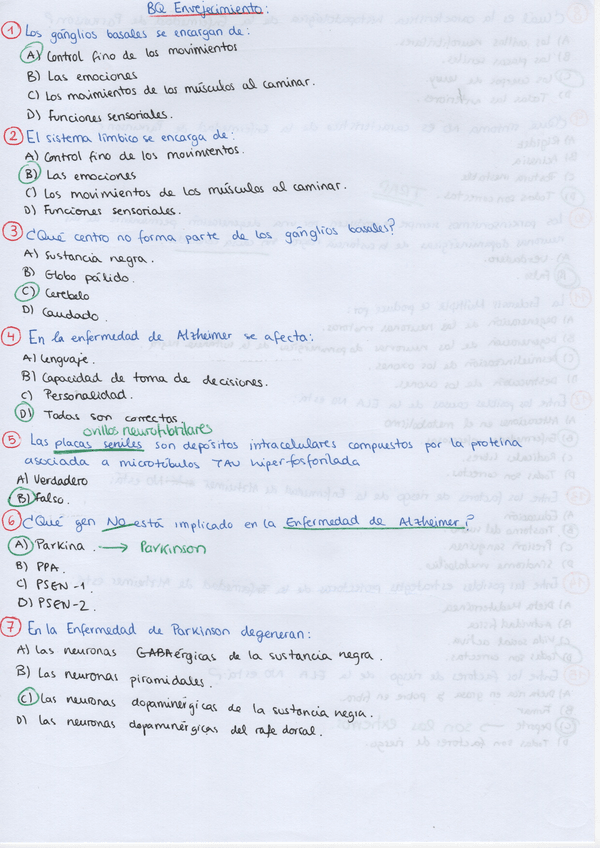 BQ Envejecimiento:
1 Los ganglios basales se encargan de:
A) Control fino de los movimientos
B) Las emociones
C) Los movimientos de los músculos al caminar.
D) Funciones sensoriales.
2 El sistema límbico se encarga de:
A) Control fino de los movimientos.
B) Las emociones
C) Los movimientos de los músculos al caminar.
D) Funciones sensoriales.
3 ¿Qué centro no forma parte de los gánglios basales?
A) Sustancia negra.
B) Globo pálido.
C) Cerebelo
D) Caudado.
4 En la enfermedad de Alzheimer se afecta:
A) Lenguaje.
B) Capacidad de toma de decisiones.
C) Personalidad.
D) Todas son correctas.
ovillos neurofibrilares
5 Las placas seniles son depósitos intracelulares compuestos por la proteína
asociada a microtúbulos TAU hiper-fosforilada
A) Verdadero
B) Falso.
6 ¿Qué gen NO está implicado en la Enfermedad de Alzheimer?
A) Parkina. → Parkinson
B) PPA.
C) PSEN-1.
D) PSEN-2.
7 En la Enfermedad de Parkinson degeneran:
A) Las neuronas GABAérgicas de la sustancia negra.
B) Las neuronas piramidales.
C) Las neuronas dopaminérgicas de la sustancia negra.
D) las neuronas dopaminérgicas del rafe dorsal.